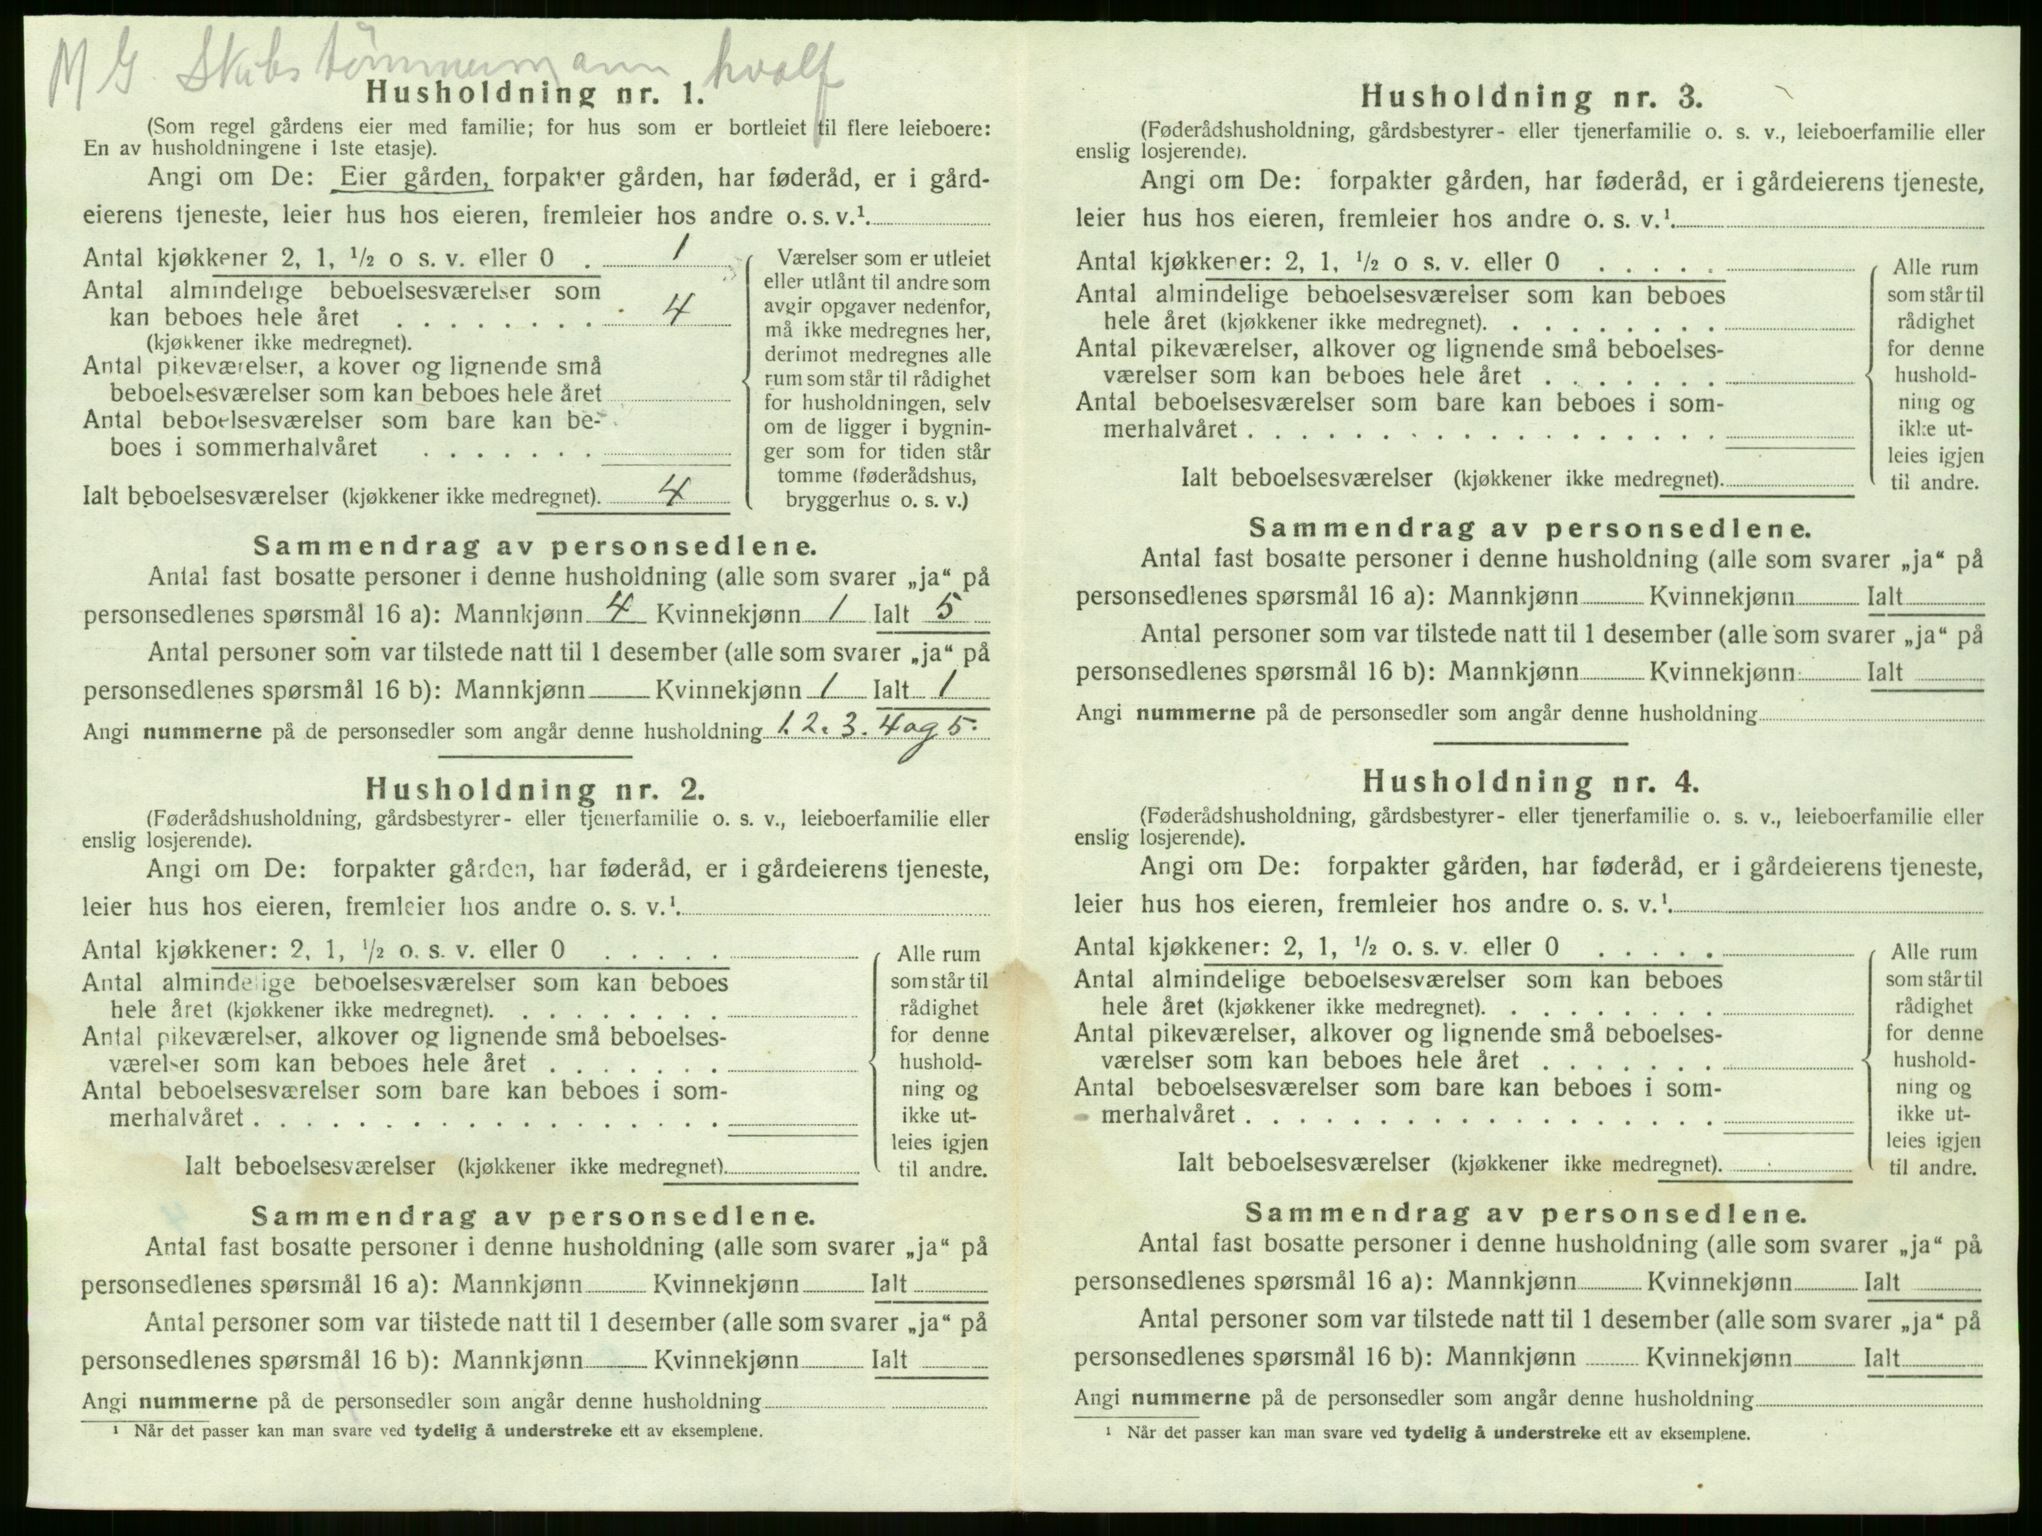 M G. Skibstømmermann hvalf
Husholdning nr. 1.
(Som regel gårdens eier med familie; for hus som er bortleiet til flere leieboere:
En av husholdningene i 1ste etasje).
Angi om De: Eier gården, forpakter gården, har føderåd, er i gård-
eierens tjeneste, leier hus hos eieren, fremleier hos andre o. s. v.¹.
Antal kjøkkener 2, 1, ½ o s. v. eller 0 . 1
Antal almindelige beboelsesværelser som
kan beboes hele året . . . . . . . . 4
(kjøkkener ikke medregnet).
Antal pikeværelser, a kover og lignende små
beboelsesværelser som kan beboes hele året
Antal beboelsesværelser som bare kan be-
boes i sommerhalvåret . . . . . . .
Ialt beboelsesværelser (kjøkkener ikke medregnet). 4
Værelser som er utleiet
eller utlånt til andre som
avgir opgaver nedenfor,
må ikke medregnes her,
derimot medregnes alle
rum som står til rådighet
for husholdningen, selv
om de ligger i bygnin-
ger som for tiden står
tomme (føderådshus,
bryggerhus o. s. v.)
Sammendrag av personsedlene.
Antal fast bosatte personer i denne husholdning (alle som svarer „ja“ på
personsedlenes spørsmål 16 a): Mannkjønn 4 Kvinnekjønn 1 Ialt 5
Antal personer som var tilstede natt til 1 desember (alle som svarer „ja“ på
personsedlenes spørsmål 16 b): Mannkjønn Kvinnekjønn 1 Ialt 1
Angi nummerne på de personsedler som angår denne husholdning 1. 2. 3. 4 og 5.
Husholdning nr. 2.
(Føderådshusholdning, gårdsbestyrer- eller tjenerfamilie o. s. v., leieboerfamilie eller
enslig losjerende).
Angi om De: forpakter gården, har føderåd, er i gårdeierens tjeneste,
leier hus hos eieren, fremleier hos andre o. s. v.¹.
Antal kjøkkener: 2, 1, ½ o. s. v. eller 0 . . . . .
Antal almindelige beboelsesværelser som kan beboes
hele året (kjøkkener ikke medregnet). . . . . . . . .
Antal pikeværelser, alkover og lignende små beboelses-
værelser som kan beboes hele året . . . . . . .
Antal beboelsesværelser som bare kan beboes i som-
merhalvåret . . . . . . . . . . . . . . . . . .
Ialt beboelsesværelser (kjøkkener ikke medregnet).
Alle rum
som står til
rådighet
for denne
hushold-
ning og
ikke ut-
leies igjen
til andre.
Sammendrag av personsedlene.
Antal fast bosatte personer i denne husholdning (alle som svarer „ja“ på
personsedlenes spørsmål 16 a): Mannkjønn Kvinnekjønn Ialt
Antal personer som var tilstede natt til 1 desember (alle som svarer „ja“ på
personsedlenes spørsmål 16 b): Mannkjønn Kvinnekjønn Ialt
Angi nummerne på de personsedler som angår denne husholdning
¹ Når det passer kan man svare ved tydelig å understreke ett av eksemplene.
Husholdning nr. 3.
(Føderådshusholdning, gårdsbestyrer- eller tjenerfamilie o. s. v., leieboerfamilie eller
enslig losjerende).
Angi om De: forpakter gården, har føderåd, er i gårdeierens tjeneste,
leier hus hos eieren, fremleier hos andre o. s. v.¹.
Antal kjøkkener: 2, 1, ½ o s. v. eller 0 . . . . .
Antal almindelige beboelsesværelser som kan beboes
hele året (kjøkkener ikke medregnet). . . . . . . . .
Antal pikeværelser, alkover og lignende små beboelses-
værelser som kan beboes hele året . . . . . . .
Antal beboelsesværelser som bare kan beboes i som-
merhalvåret . . . . . . . . . . . . . . . . . .
Ialt beboelsesværelser (kjøkkener ikke medregnet).
Alle rum
som står til
rådighet
for denne
hushold-
ning og
ikke ut-
leies igjen
til andre.
Sammendrag av personsedlene.
Antal fast bosatte personer i denne husholdning (alle som svarer „ja“ på
personsedlenes spørsmål 16 a): Mannkjønn Kvinnekjønn Ialt
Antal personer som var tilstede natt til 1 desember (alle som svarer „ja“ på
personsedlenes spørsmål 16 b): Mannkjønn Kvinnekjønn Ialt
Angi nummerne på de personsedler som angår denne husholdning
Husholdning nr. 4.
(Føderådshusholdning, gårdsbestyrer- eller tjenerfamilie o. s. v., leieboerfamilie eller
enslig losjerende).
Angi om De: forpakter gården, har føderåd, er i gårdeierens tjeneste,
leier hus hos eieren, fremleier hos andre o. s. v.¹.
Antal kjøkkener: 2, 1, ½ o. s. v. eller 0 . . . . .
Antal almindelige beboelsesværelser som kan beboes
hele året (kjøkkener ikke medregnet). . . . . . . . .
Antal pikeværelser, alkover og lignende små beboelses-
værelser som kan beboes hele året . . . . . . .
Antal beboelsesværelser som bare kan beboes i som-
merhalvåret . . . . . . . . . . . . . . . . . .
Ialt beboelsesværelser (kjøkkener ikke medregnet).
Alle rum
som står til
rådighet
for denne
hushold-
ning og
ikke ut-
leies igjen
til andre.
Sammendrag av personsedlene.
Antal fast bosatte personer i denne husholdning (alle som svarer „ja“ på
personsedlenes spørsmål 16 a): Mannkjønn Kvinnekjønn Ialt
Antal personer som var tilstede natt til 1 desember (alle som svarer „ja“ på
personsedlenes spørsmål 16 b): Mannkjønn Kvinnekjønn Ialt
Angi nummerne på de personsedler som angår denne husholdning
¹ Når det passer kan man svare ved tydelig å understreke ett av eksemplene.